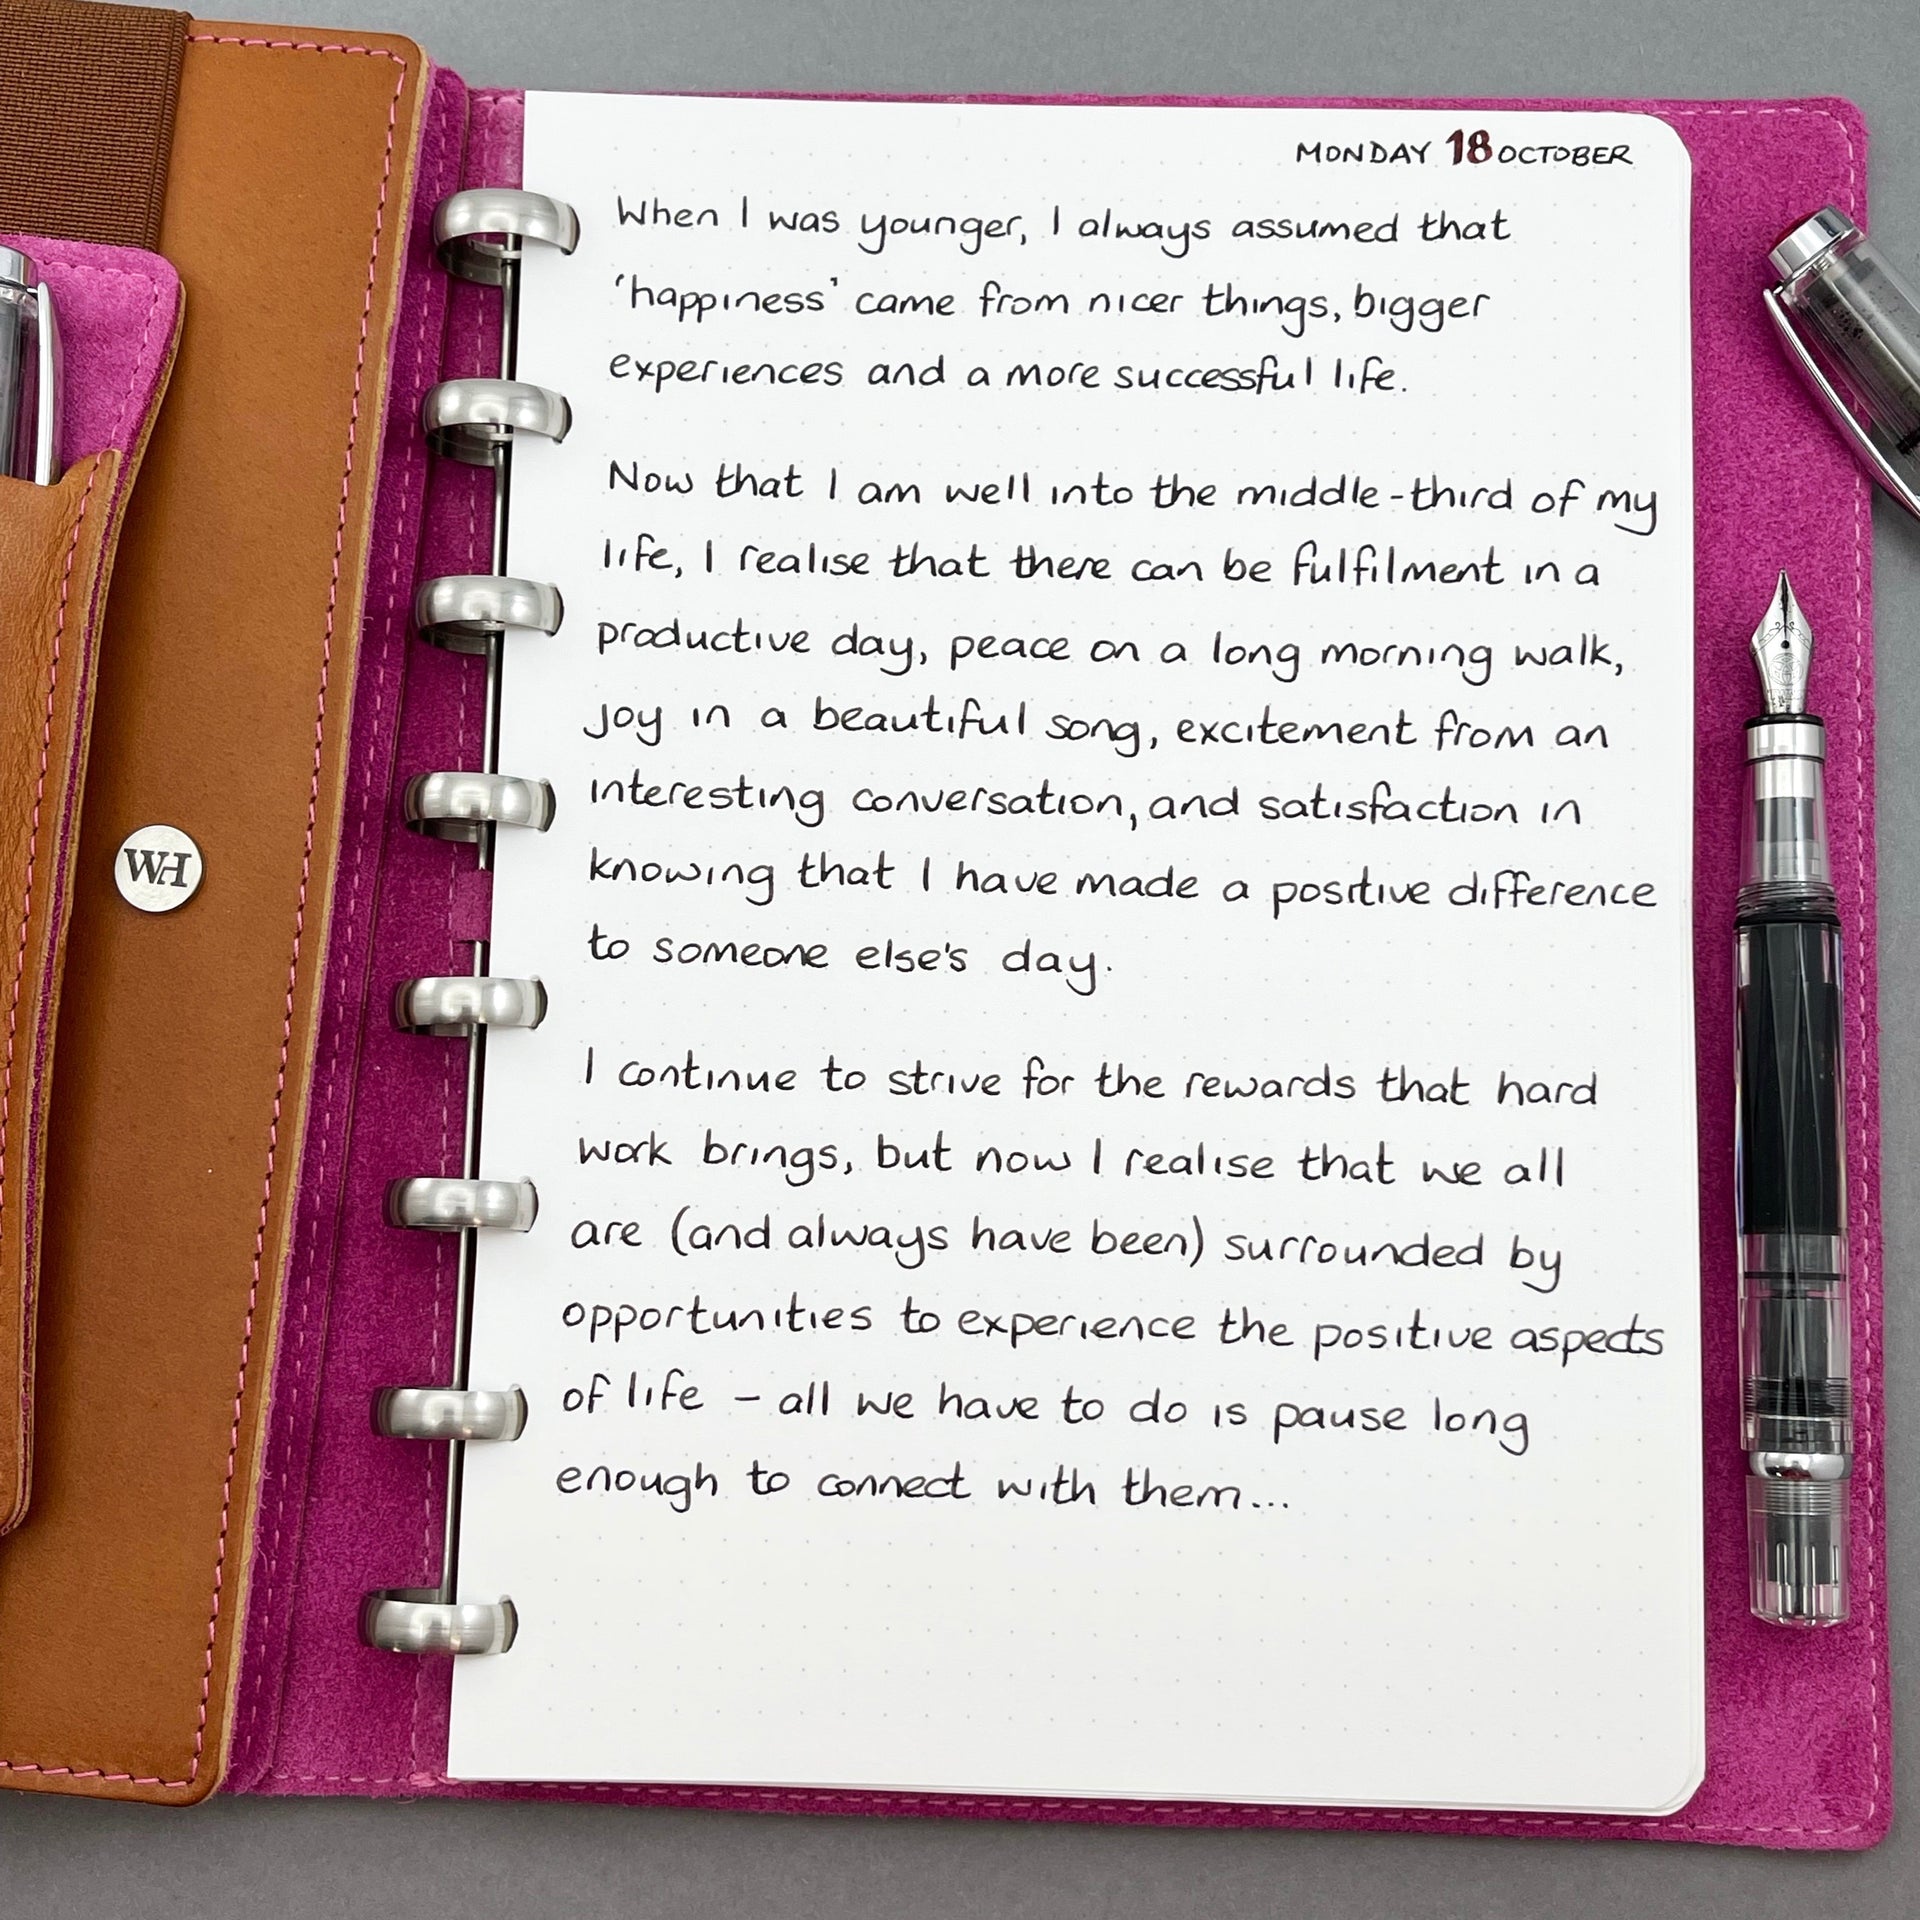 WH
MONDAY 18 OCTOBER
When I was younger, I always assumed that
'happiness' came from nicer things, bigger
experiences and a more successful life.
Now that I am well into the middle-third of my
life, I realise that there can be fulfilment in a
productive day, peace on a long morning walk,
joy in a beautiful song, excitement from an
interesting conversation, and satisfaction in
knowing that I have made a positive difference
to someone else's day.
I continue to strive for the rewards that hard
work brings, but now I realise that we all
are (and always have been) surrounded by
opportunities to experience the positive aspects
of life - all we have to do is pause long
enough to connect with them...